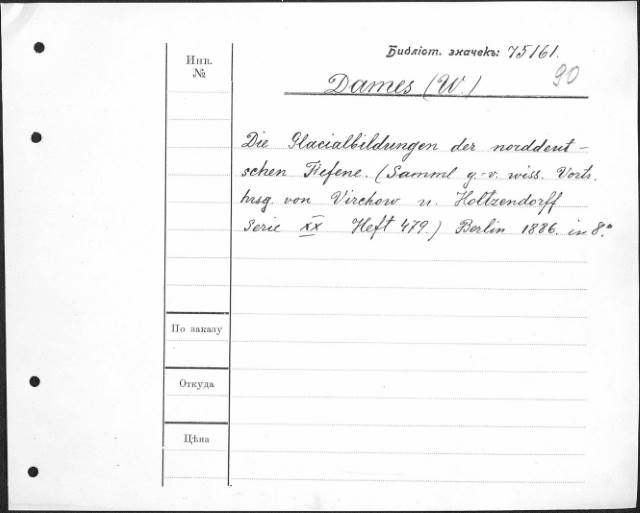 Библіот. значекъ: 75161.
90
Инв.
№
Dames (W.)
Die Glacialbildungen der norddeut-
schen Tiefene. (Samml g.-v. wiss. Vortr.
hrsg. von Virchow u. Holtzendorff
Serie XX Heft 479.) Berlin 1886. in 8°
По заказу
Откуда
Цѣна